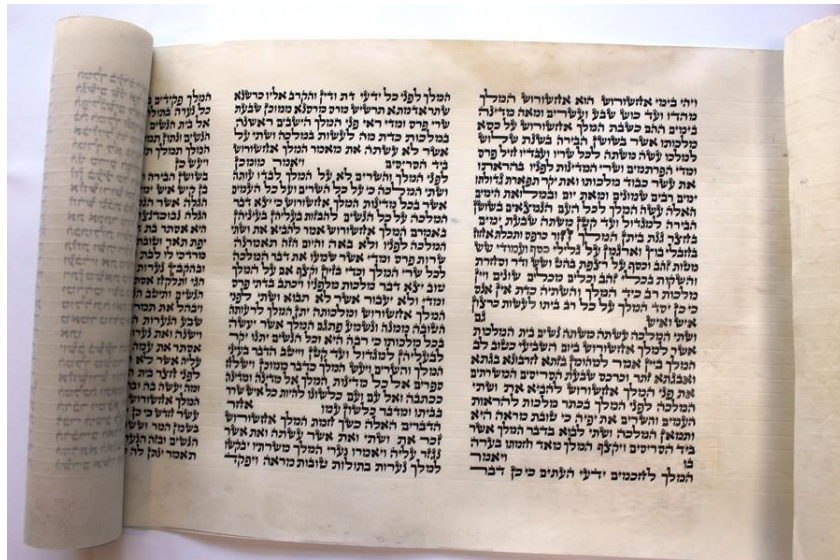 ויהי בימי אחשורוש הוא אחשורוש המלך
מהדו ועד כוש שבע ועשרים ומאה מדינה
בימים ההם כשבת המלך אחשורוש על כסא
מלכותו אשר בשושן הבירה בשנת שלוש
למלכו עשה משתה לכל שריו ועבדיו חיל פרס
ומדי הפרתמים ושרי המדינות לפניו בהראתו
את עשר כבוד מלכותו ואת יקר תפארת גדולתו
ימים רבים שמונים ומאת יום ובמלואת הימים
האלה עשה המלך לכל העם הנמצאים בשושן
הבירה למגדול ועד קטן משתה שבעת ימים
בחצר גנת ביתן המלך חור כרפס ותכלת אחוז
בחבלי בוץ וארגמן על גלילי כסף ועמודי שש
מטות זהב וכסף על רצפת בהט ושש ודר וסחרת
והשקות בכלי זהב וכלים מכלים שונים ויין
מלכות רב כיד המלך והשתיה כדת אין אנס
כי כן יסד המלך על כל רב ביתו לעשות כרצון
איש ואיש גם
ושתי המלכה עשתה משתה נשים בית המלכות
אשר למלך אחשורוש ביום השביעי כטוב לב
המלך ביין אמר למהומן בזתא חרבונא בגתא
ואבגתא זתר וכרכס שבעת הסריסים המשרתים
את פני המלך אחשורוש להביא את ושתי
המלכה לפני המלך בכתר מלכות להראות
העמים והשרים את יפיה כי טובת מראה היא
ותמאן המלכה ושתי לבוא בדבר המלך אשר
ביד הסריסים ויקצף המלך מאד וחמתו בערה
בו ויאמר
המלך לחכמים ידעי העתים כי כן דבר
המלך לפני כל ידעי דת ודין והקרב אליו כרשנא
שתר אדמתא תרשיש מרס מרסנא ממוכן שבעת
שרי פרס ומדי ראי פני המלך הישבים ראשנה
במלכות כדת מה לעשות במלכה ושתי על
אשר לא עשתה את מאמר המלך אחשורוש
ביד הסריסים ויאמר מומכן
לפני המלך והשרים לא על המלך לבדו עותה
ושתי המלכה כי על כל השרים ועל כל העמים
אשר בכל מדינות המלך אחשורוש כי יצא דבר
המלכה על כל הנשים להבזות בעליהן בעיניהן
באמרם המלך אחשורוש אמר להביא את ושתי
המלכה לפניו ולא באה והיום הזה תאמרנה
שרות פרס ומדי אשר שמעו את דבר המלכה
לכל שרי המלך וכדי בזיון וקצף אם על המלך
טוב יצא דבר מלכות מלפניו ויכתב בדתי פרס
ומדי ולא יעבור אשר לא תבוא ושתי לפני
המלך אחשורוש ומלכותה יתן המלך לרעותה
הטובה ממנה ונשמע פתגם המלך אשר יעשה
בכל מלכותו כי רבה היא וכל הנשים יתנו יקר
לבעליהן למגדול ועד קטן וייטב הדבר בעיני
המלך והשרים ויעש המלך כדבר ממוכן וישלח
ספרים אל כל מדינות המלך אל מדינה ומדינה
ככתבה ואל עם ועם כלשונו להיות כל איש שרר
בביתו ומדבר כלשון עמו אחר
הדברים האלה כשך חמת המלך אחשורוש
זכר את ושתי ואת אשר עשתה ואת אשר
נגזר עליה ויאמרו נערי המלך משרתיו יבקשו
למלך נערות בתולות טובות מראה ויפקד
המלך פקידים
כל נערה בתולה
אל בית הנשים
הנשים ונתון
המלך תמלך
ויעש כן
בשושן הבירה
בן קיש איש
הגלה אשר
הגלה נבוכדנצר
היא אסתר בת
יפת תאר וטובת
מרדכי לו לבת
ובהקבץ נערות
הגי ותלקח
הנשים ותיטב
ויבהל את
שבע הנערות
וישנה ואת
אסתר את עמה
עליה אשר לא
לפני חצר בית
ומה יעשה בה
המלך אחשורוש
עשר חדש כי כן
בשמן המר וששה
הנשים ובזה הנערה
תאמר ינתן לה